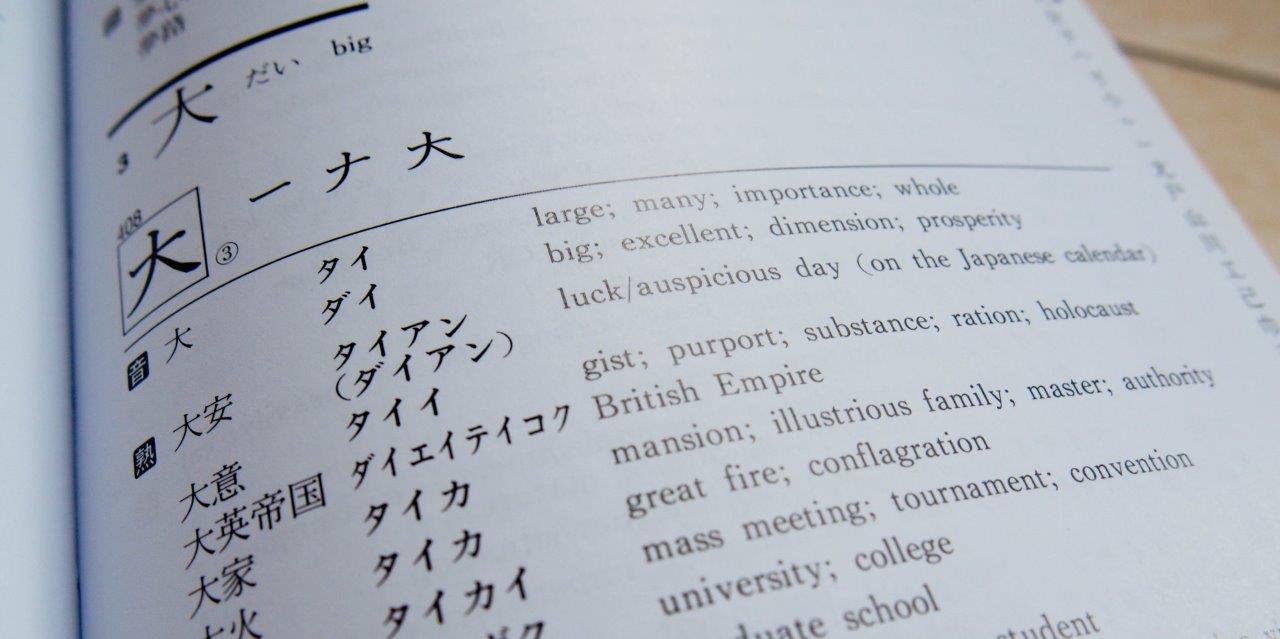 大 だい big
3
一 ナ 大
408
大 ③
音 大 タイ large; many; importance; whole
ダイ big; excellent; dimension; prosperity
熟 大安 タイアン luck/auspicious day (on the Japanese calendar)
(ダイアン)
大意 タイイ gist; purport; substance; ration; holocaust
大英帝国 ダイエイテイコク British Empire
大家 タイカ mansion; illustrious family; master; authority
大火 タイカ great fire; conflagration
タイカイ mass meeting; tournament; convention
university; college
school
student